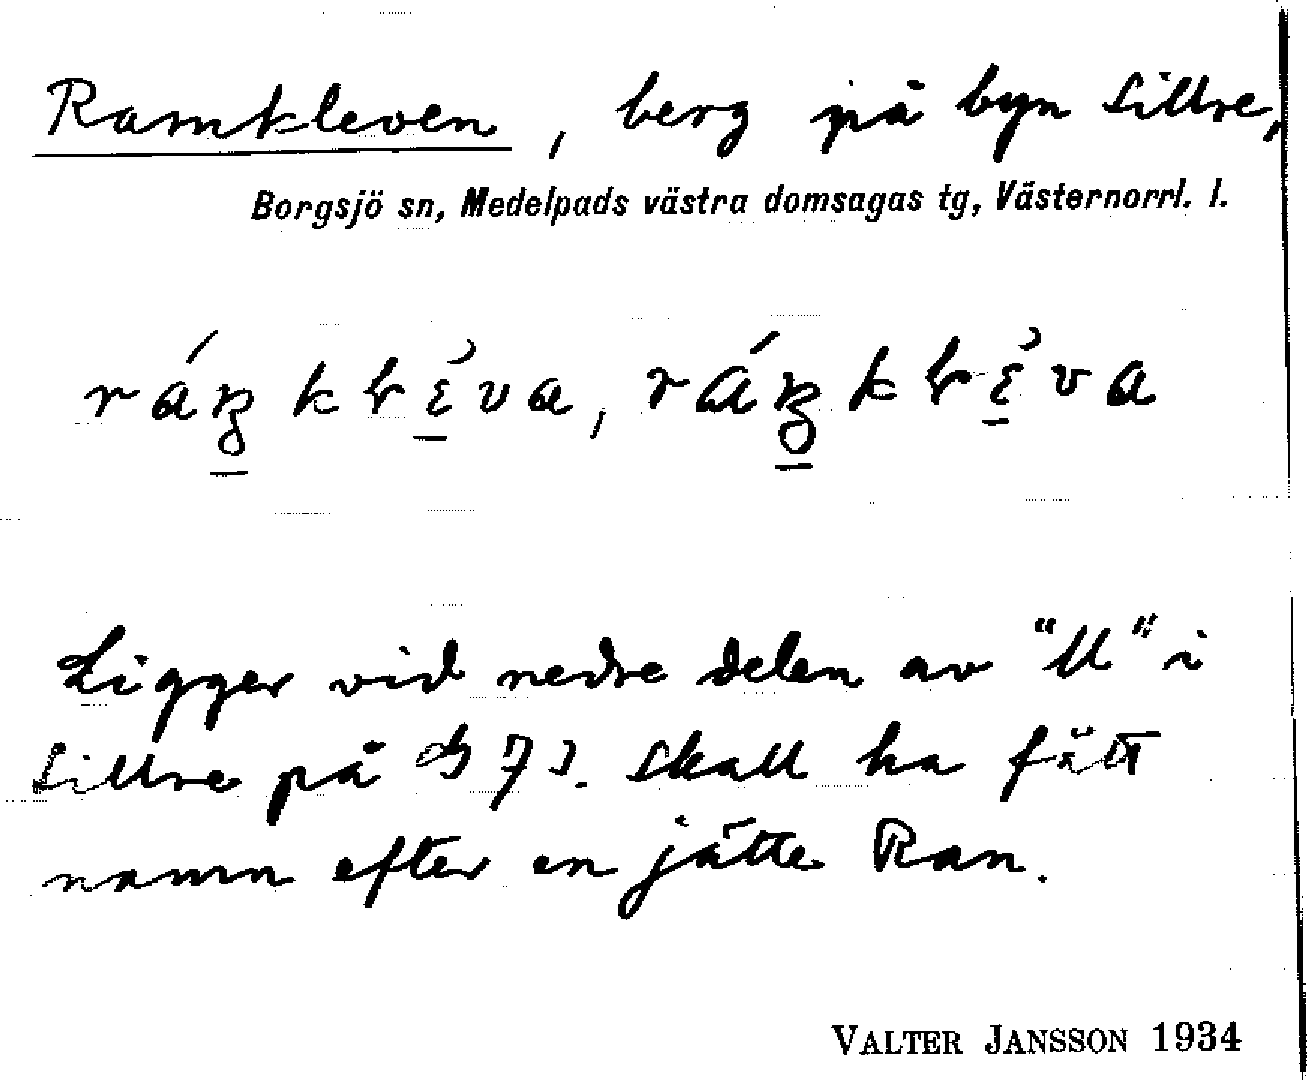 Ramkleven, berg på byn Sillre,
Borgsjö sn, Medelpads västra domsagas tg, Västernorrl. l.
Ligger vid nedre delen av "ll" i
Sillre på GS 73. Skall ha fått
namn efter en jätte Ran.
VALTER JANSSON 1934